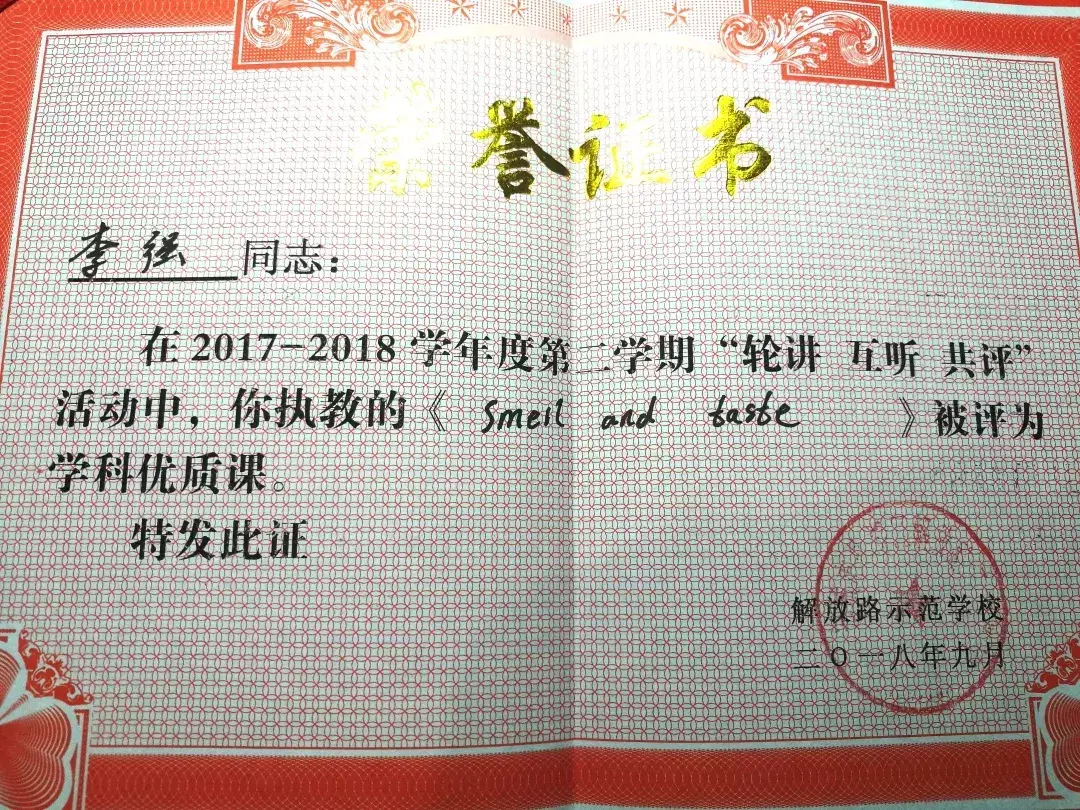 荣誉证书
李强 同志：
在2017-2018学年度第二学期“轮讲 互听 共评”
活动中，你执教的《 Smell and taste 》被评为
学科优质课。
特发此证
解放路示范学校
二〇一八年九月